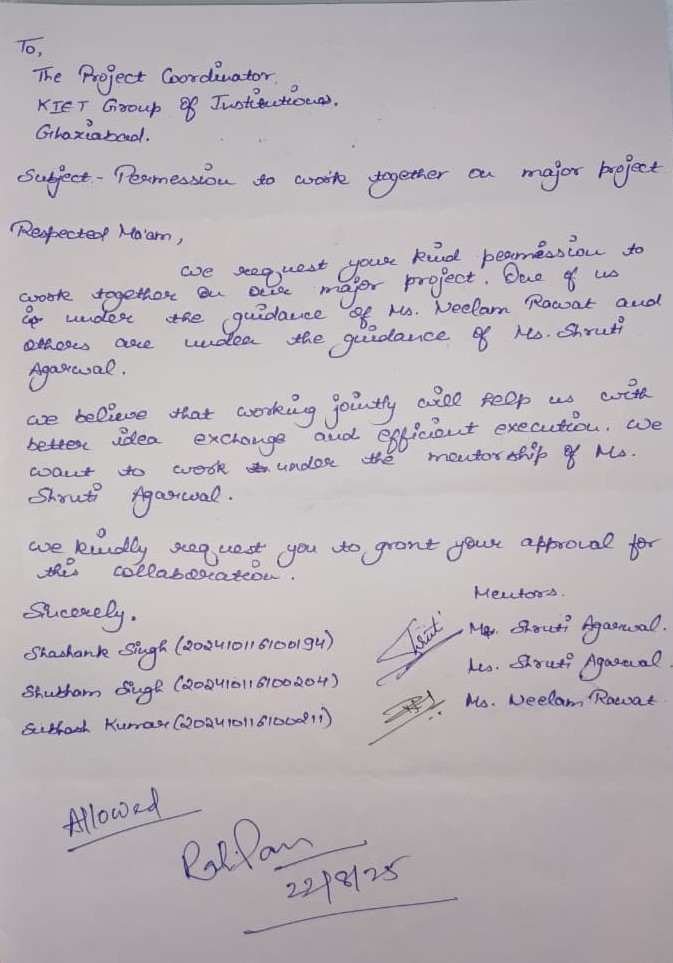 To,
The Project Coordinator,
KIET Group of Institutions,
Ghaziabad.
Subject - Permession to work together on major project
Respected Ma'am,
We request your kind permession to
work together on our major project. One of us
is under the guidance of Ms. Neelam Rawat and
others are under the guidance of Ms. Shruti
Agarwal.
We believe that working jointly will help us with
better idea exchange and efficient execution. We
want to work under the mentorship of Ms.
Shruti Agarwal.
We kindly request you to grant your approval for
this collaboration.
Sincerely,
Shashank Singh (202410116100194)
Shubham Singh (202410116100204)
Subhash Kumar (202410116100211)
Mentors.
Ms. Shruti Agarwal.
Ms. Shruti Agarwal
Ms. Neelam Rawat
Allowed
22/8/25